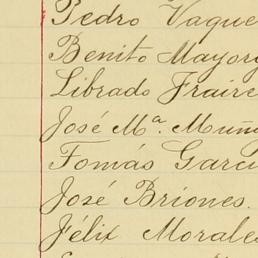 Pedro Vaque
Benito Mayorg
Librado Fraire
José Mª. Muñ
Tomás Garcí
José Briones.
Félix Morales